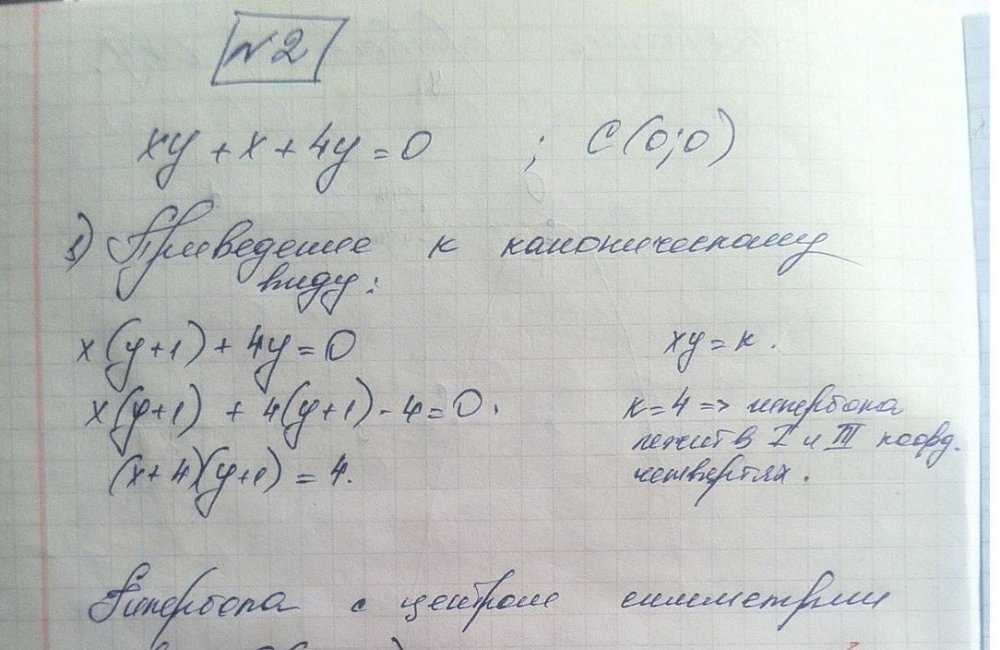 N2
xy + x + 4y = 0 ; C(0;0)
1) Приведение к каноническому
виду:
x(y+1) + 4y = 0
xy = к.
x(y+1) + 4(y+1) - 4 = 0.
к=4 => гипербола
лежит в I и III коорд.
(x+4)(y+1) = 4.
четвертях.
Гипербола с центром симметрии